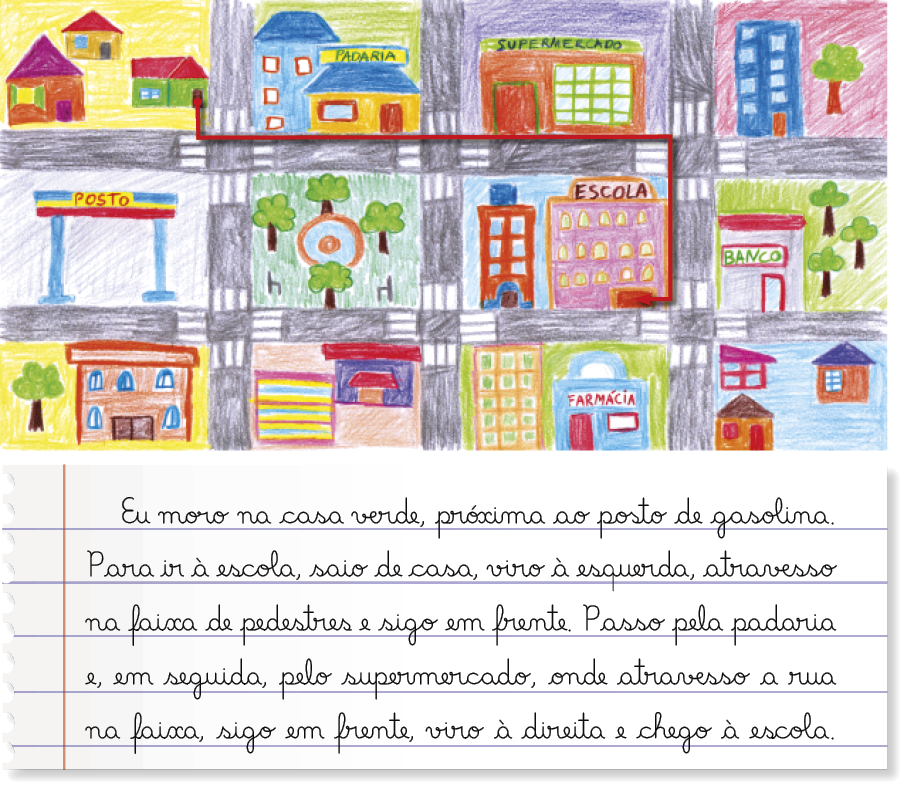 PADARIA
SUPERMERCADO
POSTO
ESCOLA
BANCO
FARMÁCIA
Eu moro na casa verde, próxima ao posto de gasolina.
Para ir à escola, saio de casa, viro à esquerda, atravesso
na faixa de pedestres e sigo em frente. Passo pela padaria
e, em seguida, pelo supermercado, onde atravesso a rua
na faixa, sigo em frente, viro à direita e chego à escola.